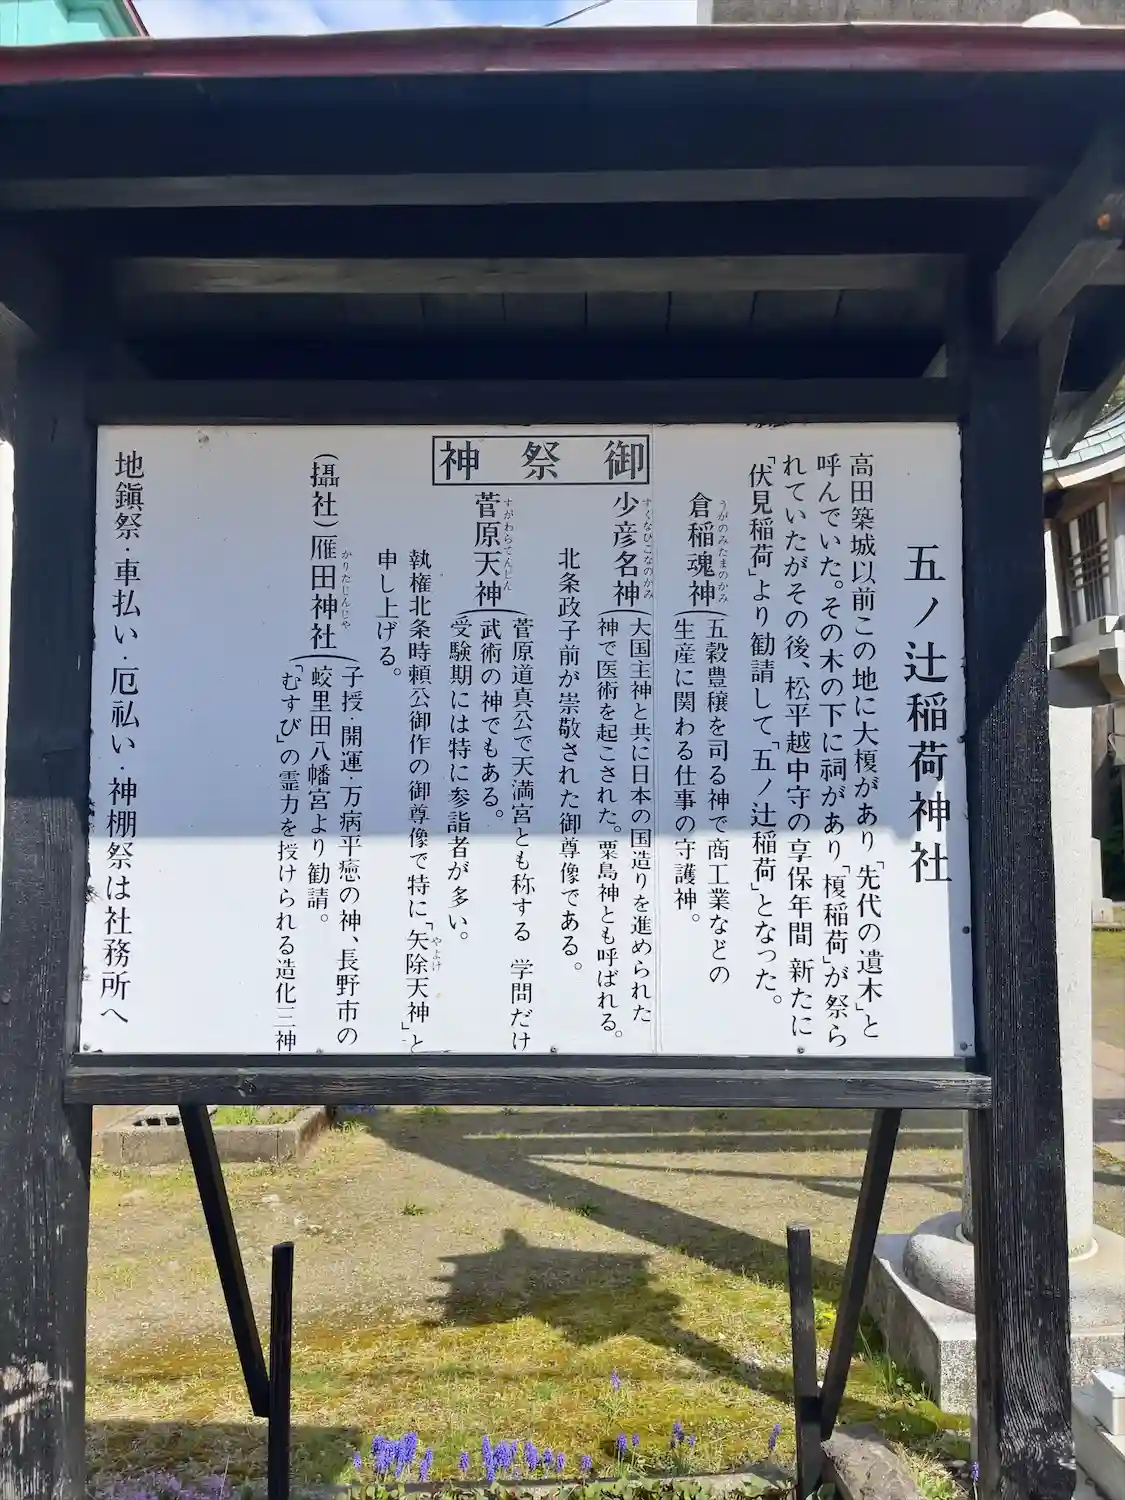 五ノ辻稲荷神社
高田築城以前この地に大榎があり「先代の遺木」と
呼んでいた。その木の下に祠があり「榎稲荷」が祭ら
れていたがその後、松平越中守の享保年間 新たに
「伏見稲荷」より勧請して「五ノ辻稲荷」となった。
御祭神
倉稲魂神
うがのみたまのかみ
(五穀豊穣を司る神で商工業などの
生産に関わる仕事の守護神。
少彦名神
すくなひこなのかみ
(大国主神と共に日本の国造りを進められた
神で医術を起こされた。粟島神とも呼ばれる。
北条政子前が崇敬された御尊像である。
菅原天神
すがわらてんじん
(菅原道真公で天満宮とも称する 学問だけ
武術の神でもある。
受験期には特に参詣者が多い。
執権北条時頼公御作の御尊像で特に「矢除天神」と
やよけ
申し上げる。
(攝社)雁田神社
かりたじんじゃ
(子授・開運・万病平癒の神、長野市の
蛟里田八幡宮より勧請。
「むすび」の霊力を授けられる造化三神
地鎮祭・車払い・厄払い・神棚祭は社務所へ